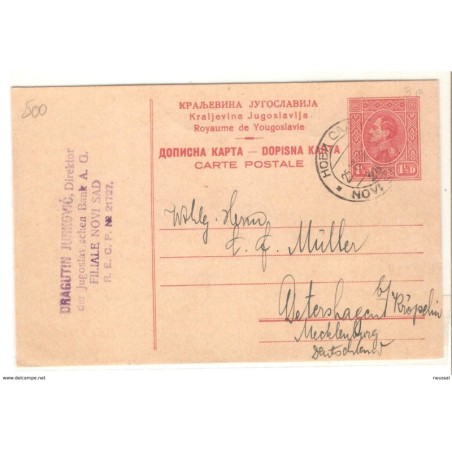 500
КРАЉЕВИНА ЈУГОСЛАВИЈА
Kraljevina Jugoslavija
Royaume de Yougoslavie
ДОПИСНА КАРТА — DOPISNA KARTA
CARTE POSTALE
НОВИ САД
NOVI
DRAGUTIN JURKOVIĆ, Direktor
der Jugoslavischen Bank A. G.
FILIALE NOVI SAD
R. E. C. P. № 21727.
Wohlg. Herrn
Müller
Detershagen b/ Kröpelin
Mecklenburg
Deutschland
www.delcampe.net
neussal